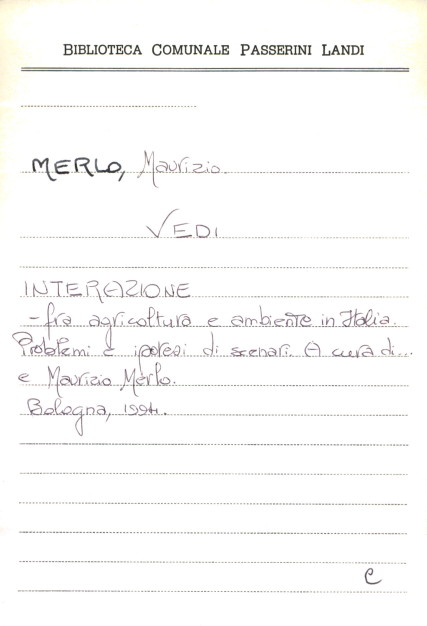 BIBLIOTECA COMUNALE PASSERINI LANDI
MERLO, Maurizio.
VEDI
INTERAZIONE
- fra agricoltura e ambiente in Italia.
Problemi e ipotesi di scenari. A cura di...
e Maurizio Merlo.
Bologna, 1994.
C